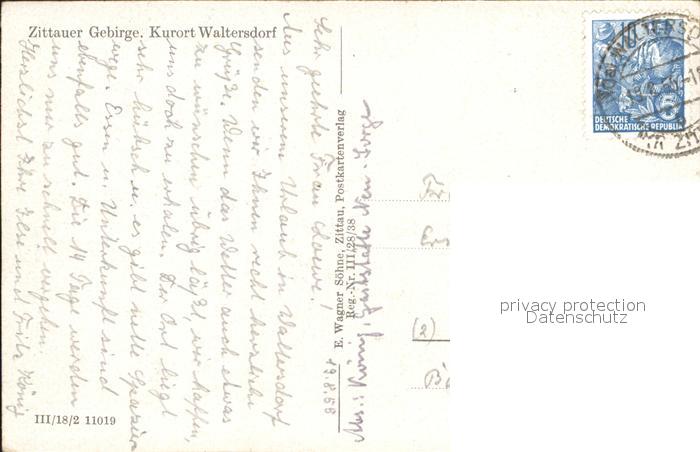 Zittauer Gebirge. Kurort Waltersdorf
Sehr geehrte Frau Loewe!
Aus unserem Urlaub in Waltersdorf
senden wir Ihnen recht herzliche
Grüße. Wenn das Wetter auch etwas
zu wünschen übrig läßt, wir hoffen,
uns doch zu erholen. Der Ort liegt
sehr hübsch u. es gibt nette Spazier-
wege. Essen u. Unterkunft sind
ebenfalls gut. Die 14 Tage werden
uns nur zu schnell vergehen.
Herzlichst Ihre Ilse und Fritz König
III/18/2 11019
E. Wagner Söhne, Zittau, Postkartenverlag
Reg.-Nr. III/28/38
19.8.56
König,
DEUTSCHE
DEMOKRATISCHE REPUBLIK
5
Fr
(2)
privacy protection
Datenschutz